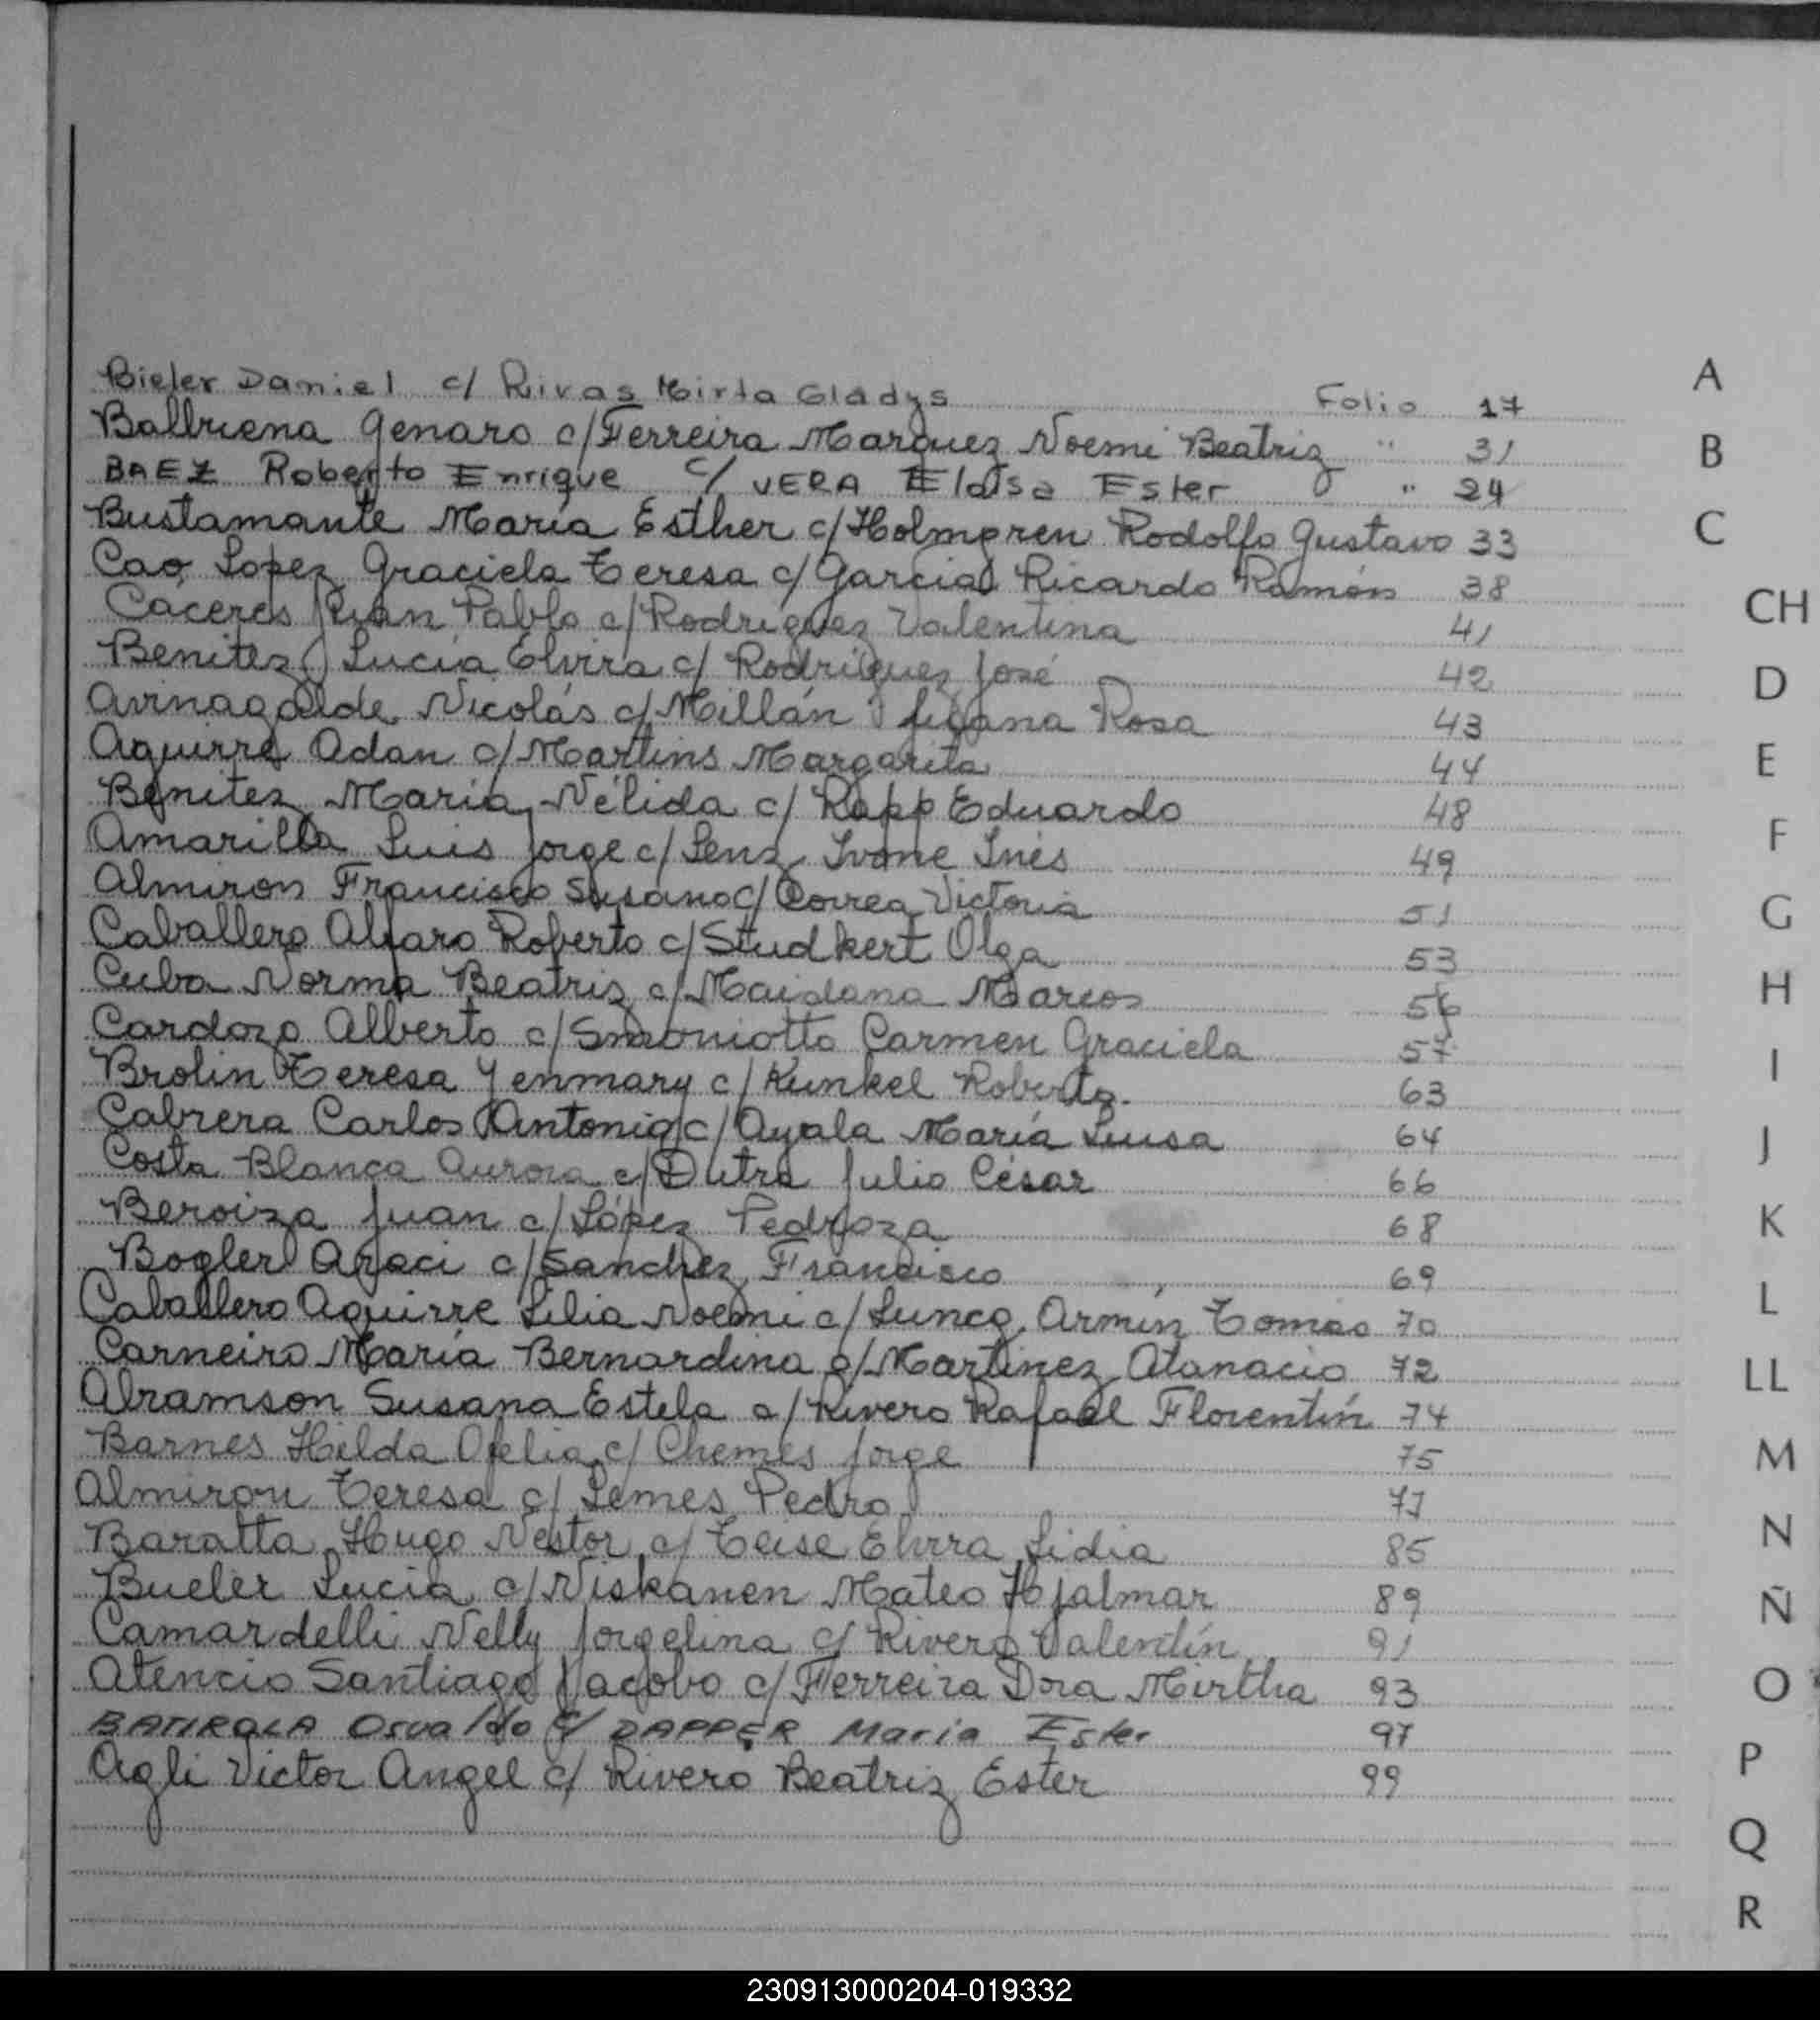 Bieler Daniel c/ Rivas Mirta Gladys Folio 17
A
Balbuena Genaro c/ Ferreira Marquez Noemi Beatriz " 31
B
BAEZ Roberto Enrique c/ VERA Eloisa Ester " 24
Bustamante María Esther c/ Holmgren Rodolfo Gustavo 33
C
Cao Lopez Graciela Teresa c/ Garcia Ricardo Ramón 38
CH
Cáceres Juan Pablo c/ Rodriguez Valentina 41
Benitez Lucía Elvira c/ Rodríguez José 42
D
Arinagalde Nicolás c/ Millán Juana Rosa 43
Aguirre Adan c/ Martins Margarita 44
E
Benitez María Nélida c/ Rapp Eduardo 48
F
Amarilla Luis Jorge c/ Lenz Ivone Inés 49
Almiron Francisco Susano c/ Correa Victoria 51
G
Caballero Alfaro Roberto c/ Studkert Olga 53
Cuba Norma Beatriz c/ Maidana Marcos 56
H
Cardozo Alberto c/ Simoniotto Carmen Graciela 57
Brolin Teresa Yenmary c/ Kunkel Roberto. 63
I
Cabrera Carlos Antonio c/ Ayala María Luisa 64
J
Costa Blanca Aurora c/ Dutra Julio César 66
Beroiza Juan c/ López Pedroza 68
K
Bogler Araci c/ Sanchez Francisco 69
L
Caballero Aguirre Lilia Noemi c/ Luncq Armín Tomás 70
Carneiro María Bernardina c/ Martinez Atanacio 72
LL
Abramson Susana Estela c/ Rivero Rafael Florentín 74
Barnes Hilda Ofelia c/ Chemes Jorge 75
M
Almiron Teresa c/ Lemes Pedro 77
Baratta Hugo Nestor c/ Teise Elvira Lidia 85
N
Bueler Lucia c/ Niskanen Mateo Hjalmar 89
Ñ
Camardelli Nelly Jorgelina c/ Rivero Valentín 91
Atencio Santiago Jacobo c/ Ferreira Dora Mirtha 93
O
BATIROLA Osvaldo c/ DAPPER Maria Ester 97
P
Agli Victor Angel c/ Rivero Beatriz Ester 99
Q
R
230913000204-019332